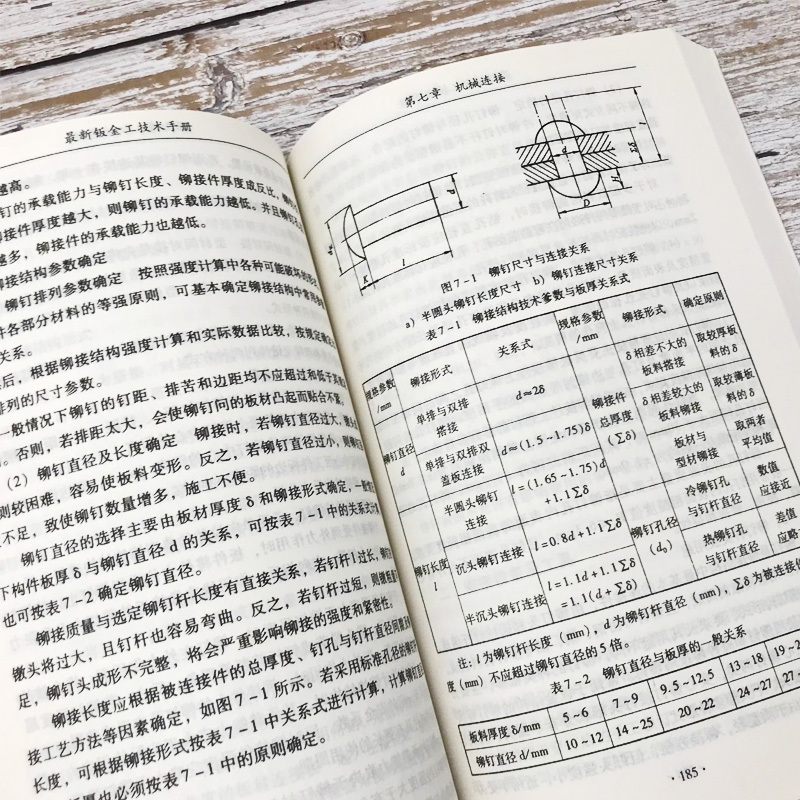 最新钣金工技术手册
越高。
钉的承载能力与铆钉长度、铆接件厚度成反比,
接件厚度越大,则铆钉的承载能力越低。并且铆钉孔
越多,铆接件的承载能力也越低。
接结构参数确定
铆钉排列参数确定 按照强度计算中各种可能破坏的形
件各部分材料的等强原则,可基本确定铆接结构中常用
关系。
后,根据铆接结构强度计算和实际数据比较,按规定
排列的尺寸参数。
一般情况下铆钉的钉距、排苦和边距均不应超过和低于其
。否则,若排距太大,会使铆钉间的板材凸起而贴合不紧,
(2) 铆钉直径及长度确定 铆接时,若铆钉直径过大,
则较困难,容易使板料变形。反之,若铆钉直径过小,则铆钉
不足,致使铆钉数量增多,施工不便。
铆钉直径的选择主要由板材厚度 δ 和铆接形式确定,一般
下构件板厚 δ 与铆钉直径 d 的关系,可按表 7-1 中的关系式计
也可按表 7-2 确定铆钉直径。
铆接质量与选定铆钉杆长度有直接关系,若钉杆 l 过长,铆钉
镦头将过大,且钉杆也容易弯曲。反之,若钉杆过短,则镦粗
足,铆钉头成形不完整,将会严重影响铆接的强度和紧密性。
铆接长度应根据被连接件的总厚度、钉孔与钉杆直径间隙
接工艺方法等因素确定,如图 7-1 所示。若采用标准孔径的铆钉
长度,可根据铆接形式按表 7-1 中关系式进行计算,计算铆钉
厚也必须按表 7-1 中的原则确定。
第七章 机械连接
d
l
d
D
H
l
图 7-1 铆钉尺寸与连接关系
a) 半圆头铆钉长度尺寸 b) 铆钉连接尺寸关系
表 7-1 铆接结构技术参数与板厚关系式
规格参数/mm 铆接形式 关系式 规格参数/mm 铆接形式 确定原则
铆钉直径 d 单排与双排搭接 d≈2δ 铆接件总厚度 (∑δ) δ 相差不大的板料搭接 取较厚板料的 δ
δ 相差较大的板料铆接 取较薄板料的 δ
单排与双排双盖板连接 d≈(1.5~1.75)δ 板材与型材铆接 取两者平均值
铆钉长度 l 半圆头铆钉连接 l=(1.65~1.75)d+1.1∑δ 铆钉孔径 (d₀) 冷铆钉孔与钉杆直径 数值应接近
沉头铆钉连接 l=0.8d+1.1∑δ 热铆钉孔与钉杆直径 差值应略
半沉头铆钉连接 l=1.1d+1.1∑δ=1.1(d+∑δ)
注:l 为铆钉杆长度 (mm),d 为铆钉杆直径 (mm),∑δ 为被连接
度 (mm) 不应超过铆钉直径的 5 倍。
表 7-2 铆钉直径与板厚的一般关系
板料厚度 δ/mm 5~6 7~9 9.5~12.5 13~18 19~2
铆钉直径 d/mm 10~12 14~25 20~22 24~27 27~
·185·